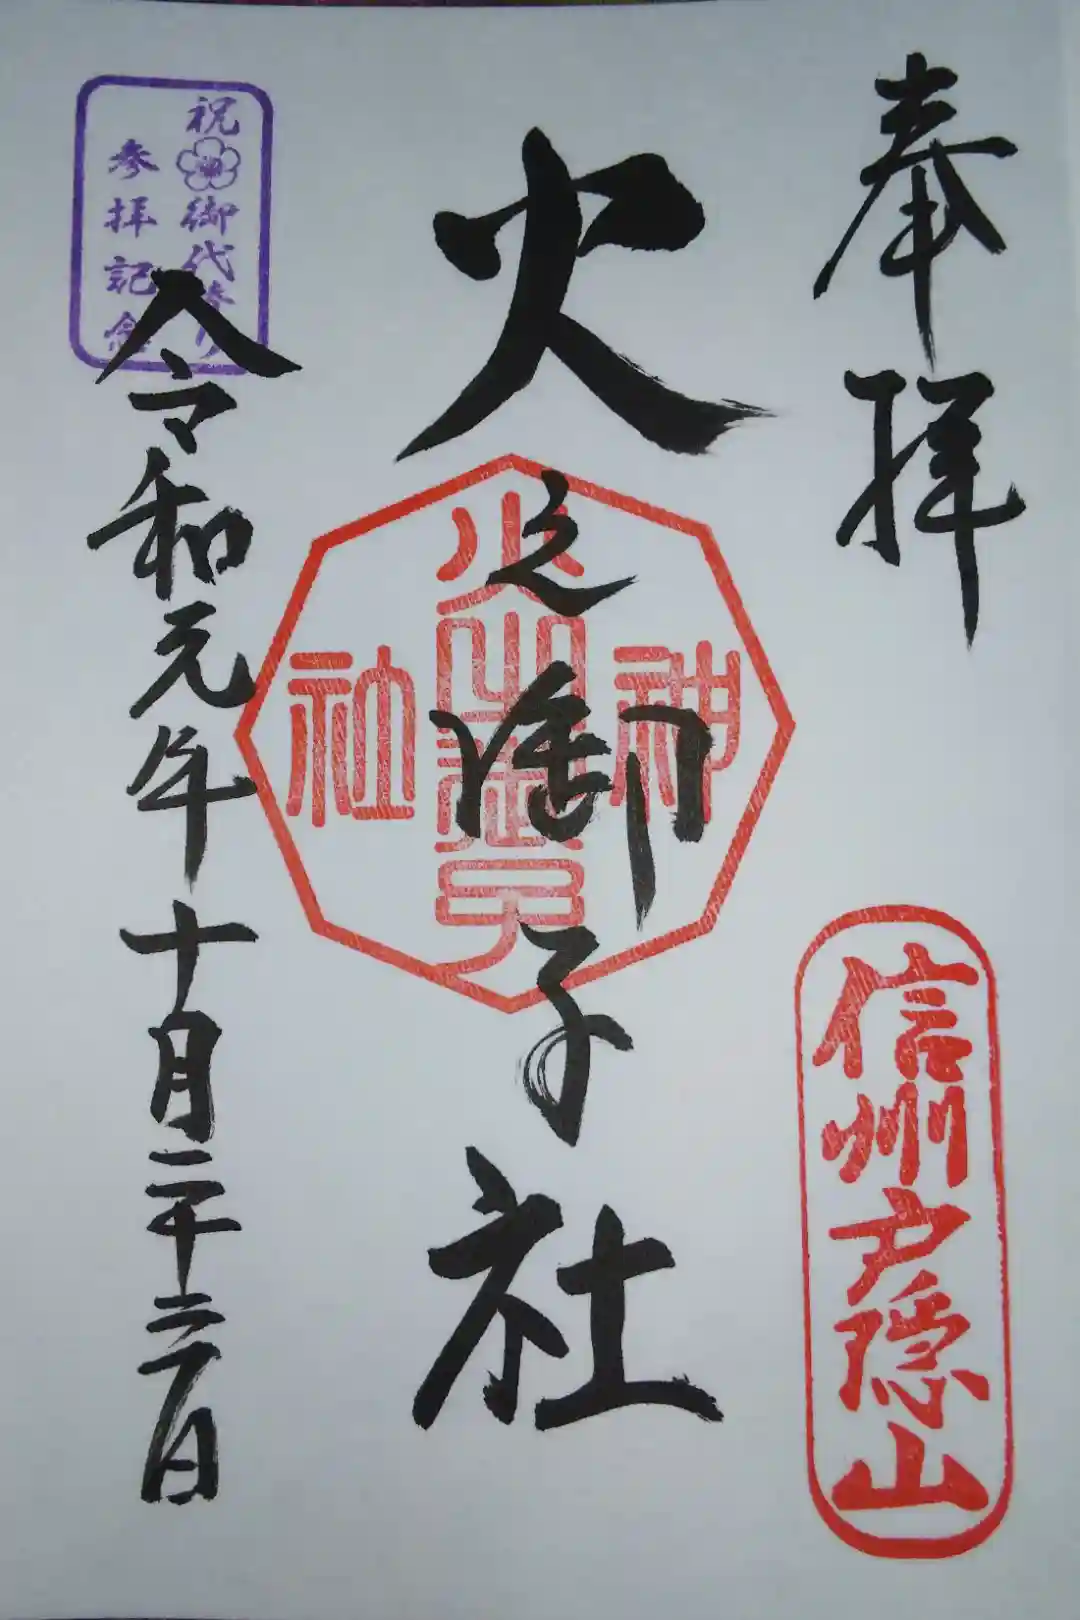 奉拝
信州戸隠山
火之御子社
神
火之御子
社
令和元年十月二十二日
祝御代替り
参拝記念